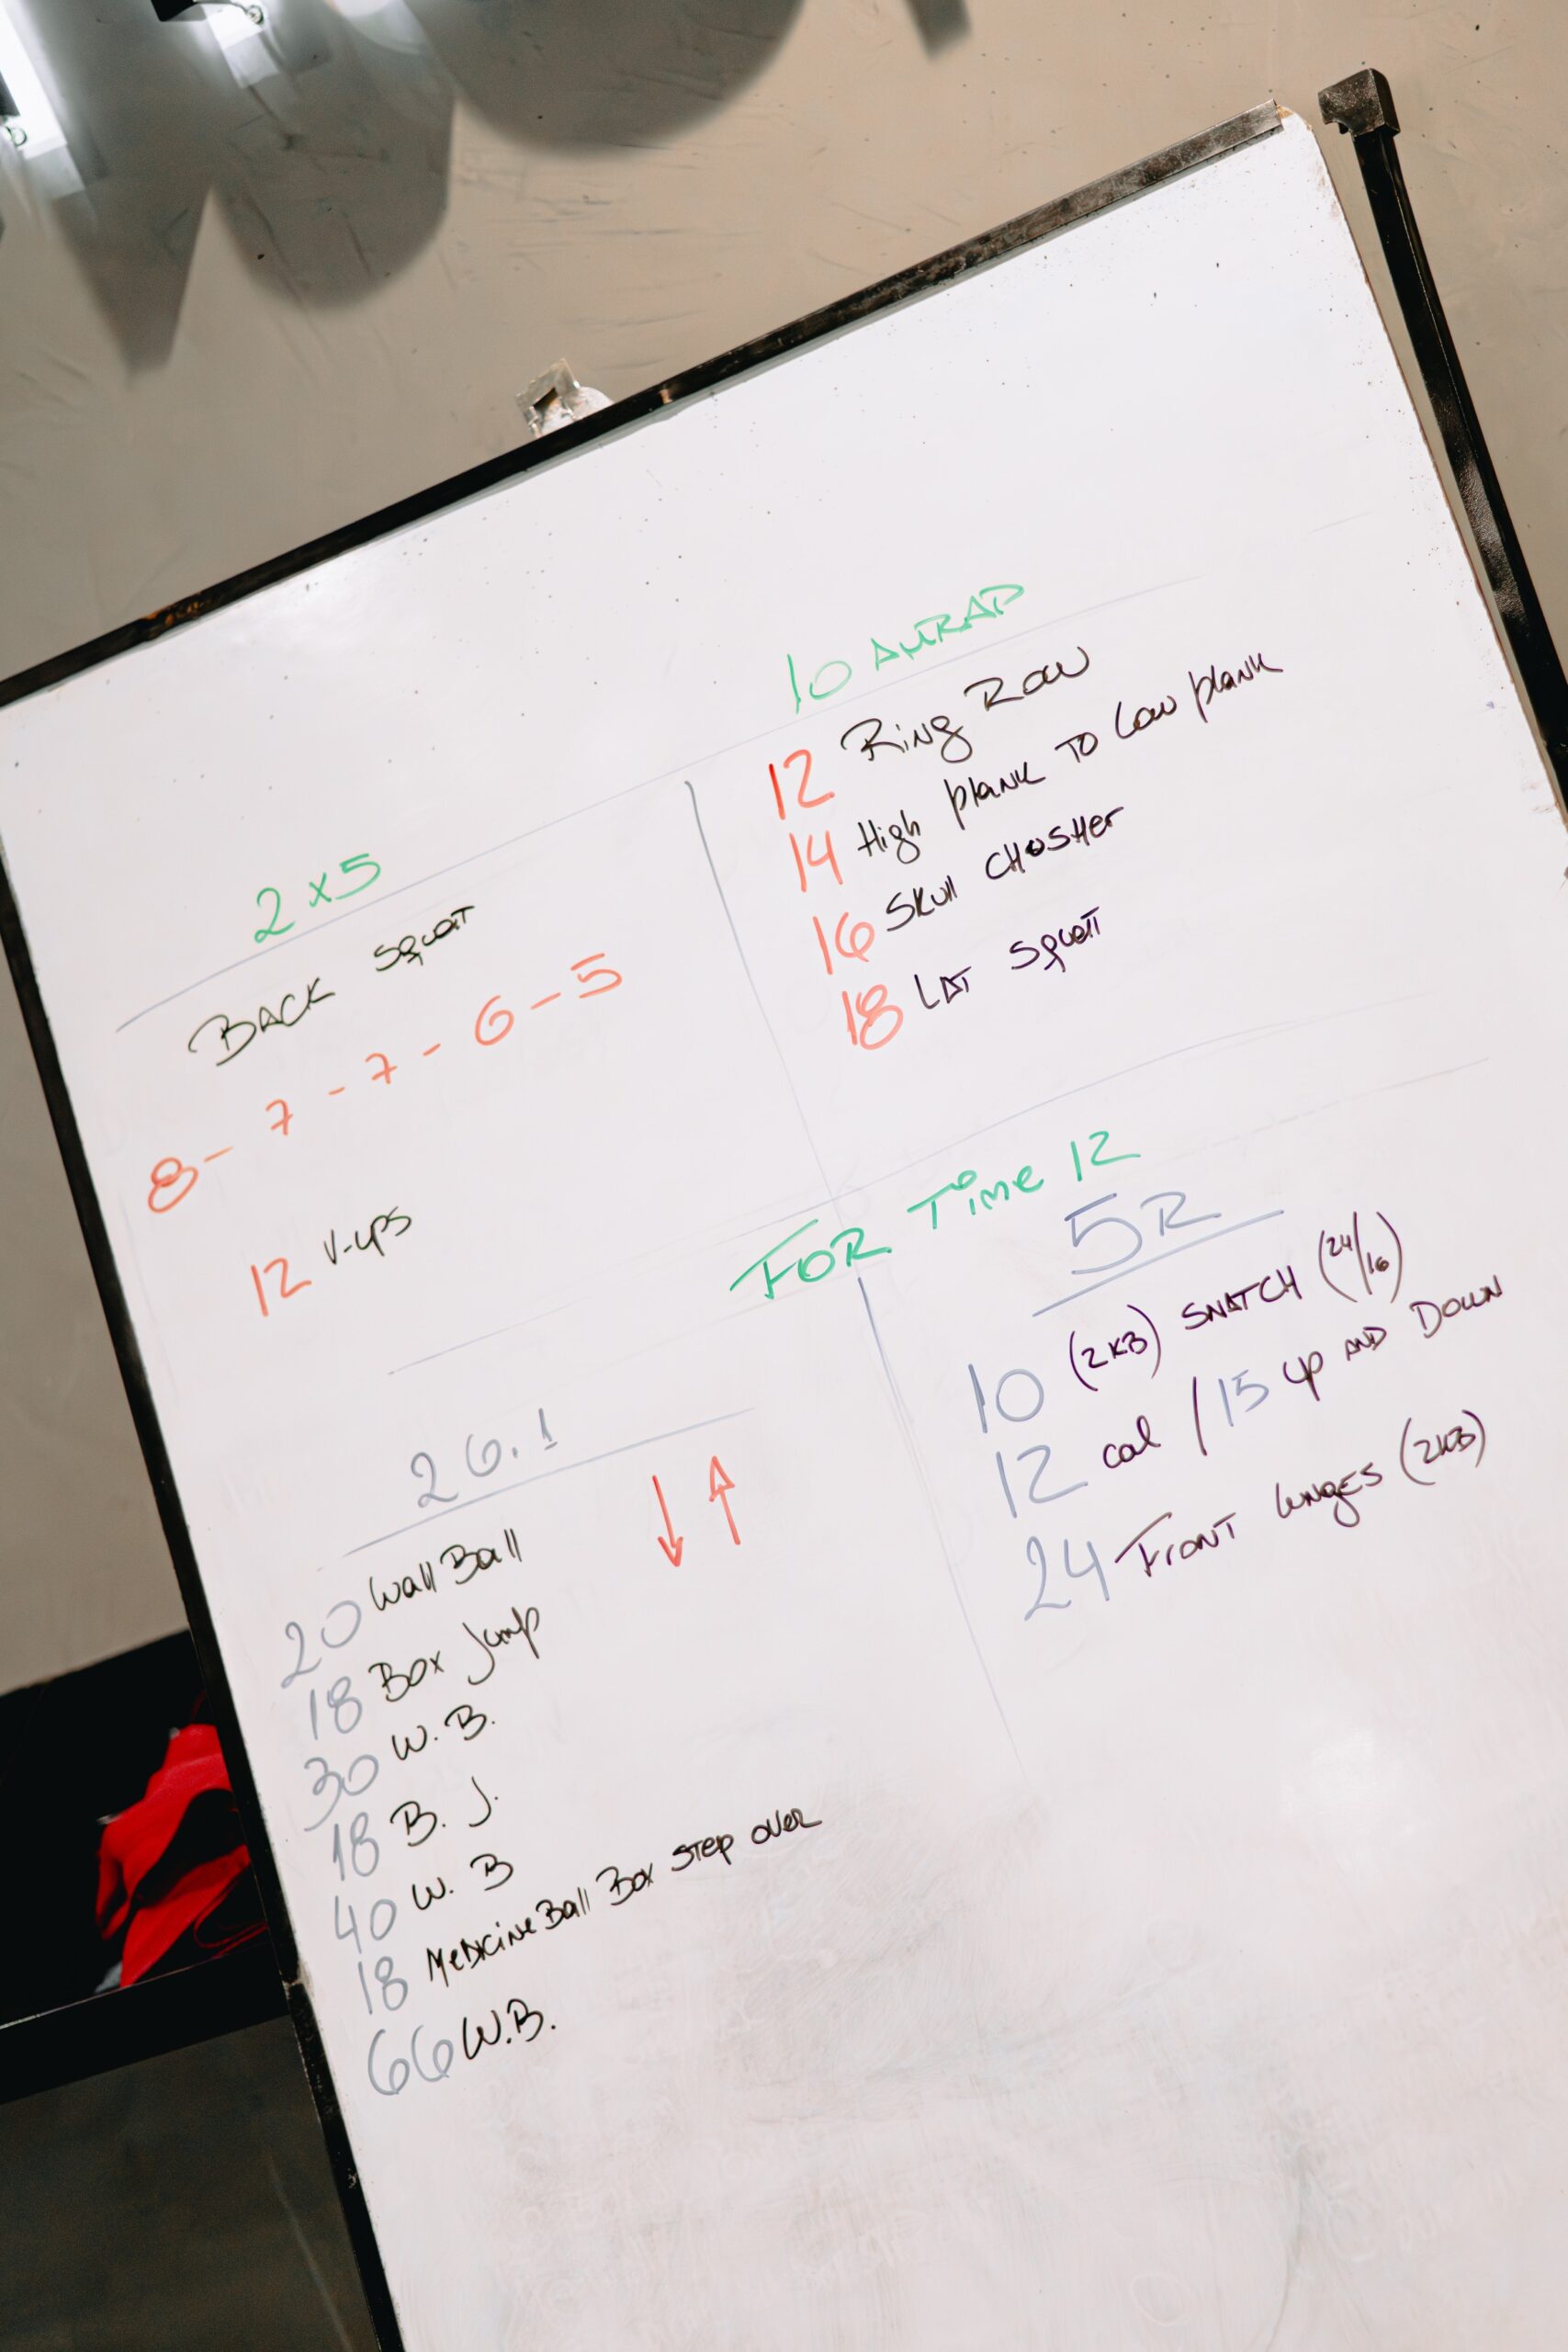 2x5
BACK squat
8 - 7 - 7 - 6 - 5
12 V-ups
10 AMRAP
12 Ring Row
14 High plank TO Low plank
16 SKull CHUSHer
18 LAT squatt
FOR Time 12
26.1
↓ ↑
20 Wall Ball
18 Box Jump
30 W.B.
18 B. J.
40 W. B
18 MeDicine Ball Box step over
66 W.B.
5R
10 (2KB) SNATCH (24/16)
12 cal / 15 up AND DOWN
24 Front lunges (2KB)